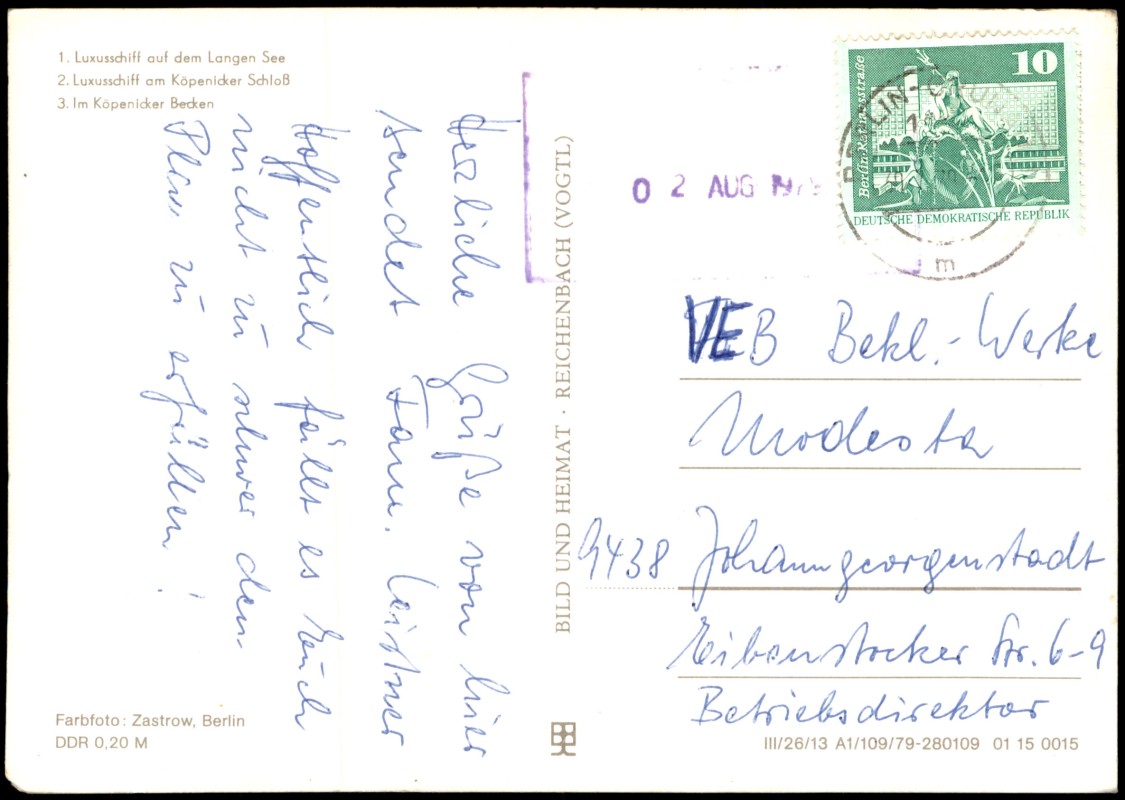 1. Luxusschiff auf dem Langen See
2. Luxusschiff am Köpenicker Schloß
3. Im Köpenicker Becken
Herzliche Grüße von hier
sendet Fam. Leistner
Hoffentlich fällt es Euch
nicht zu schwer den
Plan zu erfüllen!
Farbfoto: Zastrow, Berlin
DDR 0,20 M
BILD UND HEIMAT · REICHENBACH (VOGTL)
0 2 AUG 1979
10
Berlin-Rathausstraße
DEUTSCHE DEMOKRATISCHE REPUBLIK
BERLIN-
m
VEB Bekl.-Werke
Modesta
9438 Johanngeorgenstadt
Eibenstocker Str. 6-9
Betriebsdirektor
III/26/13 A1/109/79-280109 01 15 0015